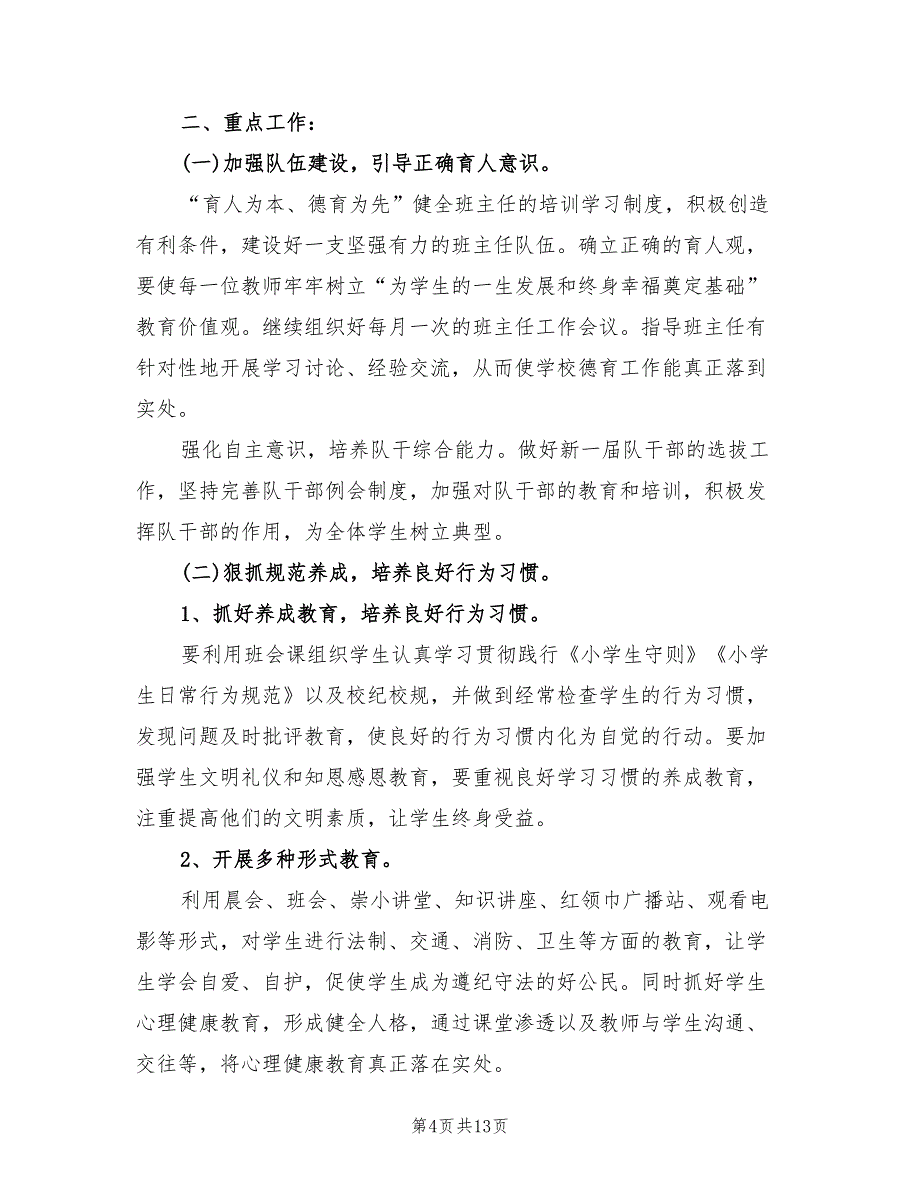 二、重点工作：
(一)加强队伍建设，引导正确育人意识。
“育人为本、德育为先”健全班主任的培训学习制度，积极创造
有利条件，建设好一支坚强有力的班主任队伍。确立正确的育人观，
要使每一位教师牢牢树立“为学生的一生发展和终身幸福奠定基础”
教育价值观。继续组织好每月一次的班主任工作会议。指导班主任有
针对性地开展学习讨论、经验交流，从而使学校德育工作能真正落到
实处。
强化自主意识，培养队干综合能力。做好新一届队干部的选拔工
作，坚持完善队干部例会制度，加强对队干部的教育和培训，积极发
挥队干部的作用，为全体学生树立典型。
(二)狠抓规范养成，培养良好行为习惯。
1、抓好养成教育，培养良好行为习惯。
要利用班会课组织学生认真学习贯彻践行《小学生守则》《小学
生日常行为规范》以及校纪校规，并做到经常检查学生的行为习惯，
发现问题及时批评教育，使良好的行为习惯内化为自觉的行动。要加
强学生文明礼仪和知恩感恩教育，要重视良好学习习惯的养成教育，
注重提高他们的文明素质，让学生终身受益。
2、开展多种形式教育。
利用晨会、班会、崇小讲堂、知识讲座、红领巾广播站、观看电
影等形式，对学生进行法制、交通、消防、卫生等方面的教育，让学
生学会自爱、自护，促使学生成为遵纪守法的好公民。同时抓好学生
心理健康教育，形成健全人格，通过课堂渗透以及教师与学生沟通、
交往等，将心理健康教育真正落在实处。
第4页共13页